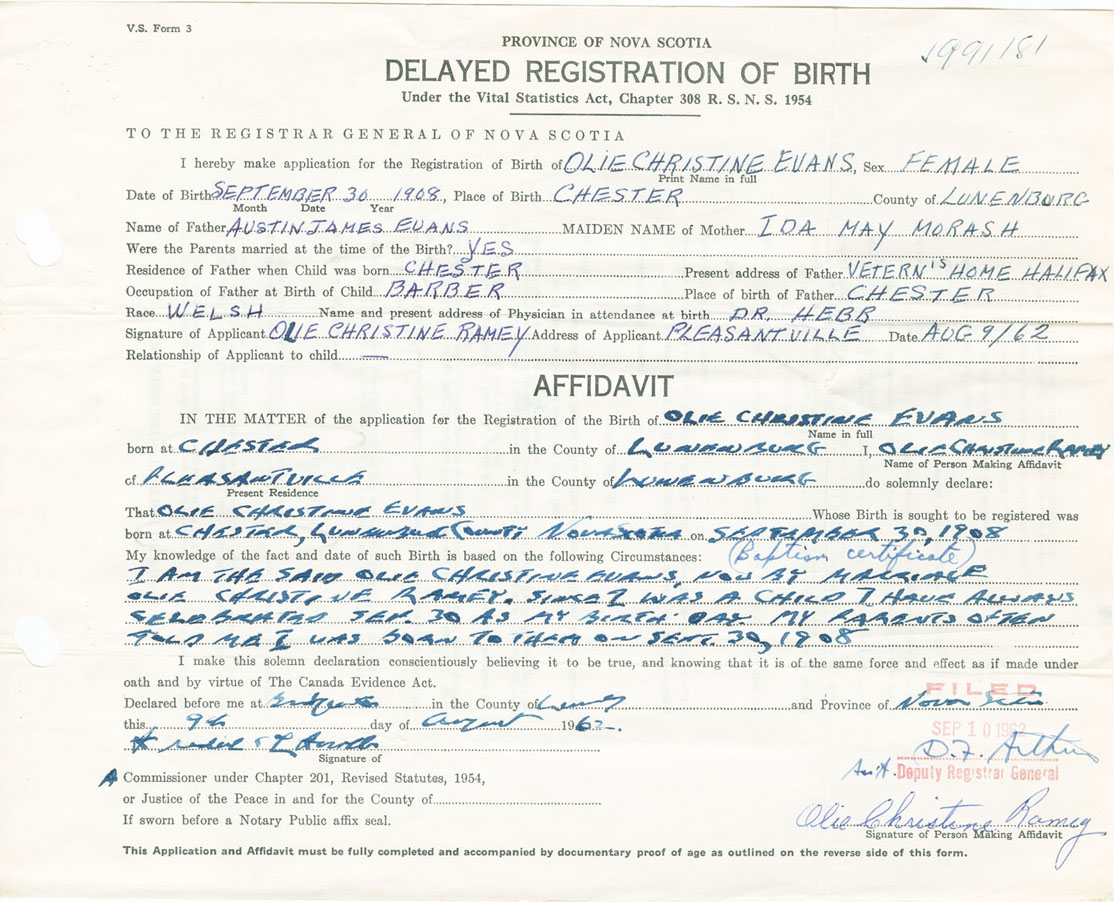 V.S. Form 3
PROVINCE OF NOVA SCOTIA
1991181
DELAYED REGISTRATION OF BIRTH
Under the Vital Statistics Act, Chapter 308 R. S. N. S. 1954
TO THE REGISTRAR GENERAL OF NOVA SCOTIA
I hereby make application for the Registration of Birth of OLIE CHRISTINE EVANS, Sex FEMALE
Print Name in full
Date of Birth SEPTEMBER 30 1908, Place of Birth CHESTER County of LUNENBURG
Month Date Year
Name of Father AUSTIN JAMES EVANS MAIDEN NAME of Mother IDA MAY MORASH
Were the Parents married at the time of the Birth? YES
Residence of Father when Child was born CHESTER Present address of Father VETERN'S HOME HALIFAX
Occupation of Father at Birth of Child BARBER Place of birth of Father CHESTER
Race WELSH Name and present address of Physician in attendance at birth DR. HEBB
Signature of Applicant OLIE CHRISTINE RAMEY Address of Applicant PLEASANTVILLE Date AUG 9/62
Relationship of Applicant to child —
AFFIDAVIT
IN THE MATTER of the application for the Registration of the Birth of OLIE CHRISTINE EVANS
Name in full
born at CHESTER in the County of LUNENBURG I, OLIE CHRISTINE RAMEY
Name of Person Making Affidavit
of PLEASANTVILLE in the County of LUNENBURG do solemnly declare:
Present Residence
That OLIE CHRISTINE EVANS Whose Birth is sought to be registered was
born at CHESTER, LUNENBURG COUNTY NOVA SCOTIA on SEPTEMBER 30, 1908
My knowledge of the fact and date of such Birth is based on the following Circumstances: (Baptism certificate)
I AM THE SAID OLIE CHRISTINE EVANS, NOW BY MARRIAGE
OLIE CHRISTINE RAMEY. SINCE I WAS A CHILD I HAVE ALWAYS
CELEBRATED SEP. 30 AS MY BIRTH DAY MY PARENTS OFTEN
TOLD ME I WAS BORN TO THEM ON SEPT. 30, 1908
I make this solemn declaration conscientiously believing it to be true, and knowing that it is of the same force and effect as if made under
oath and by virtue of The Canada Evidence Act.
Declared before me at in the County of and Province of Nova Scotia
FILED
this 9th day of August 1962.
SEP 10 1962
Signature of
D.F. Arthur
A Commissioner under Chapter 201, Revised Statutes, 1954,
Asst. Deputy Registrar General
or Justice of the Peace in and for the County of
If sworn before a Notary Public affix seal.
Olie Christine Ramey
Signature of Person Making Affidavit
This Application and Affidavit must be fully completed and accompanied by documentary proof of age as outlined on the reverse side of this form.